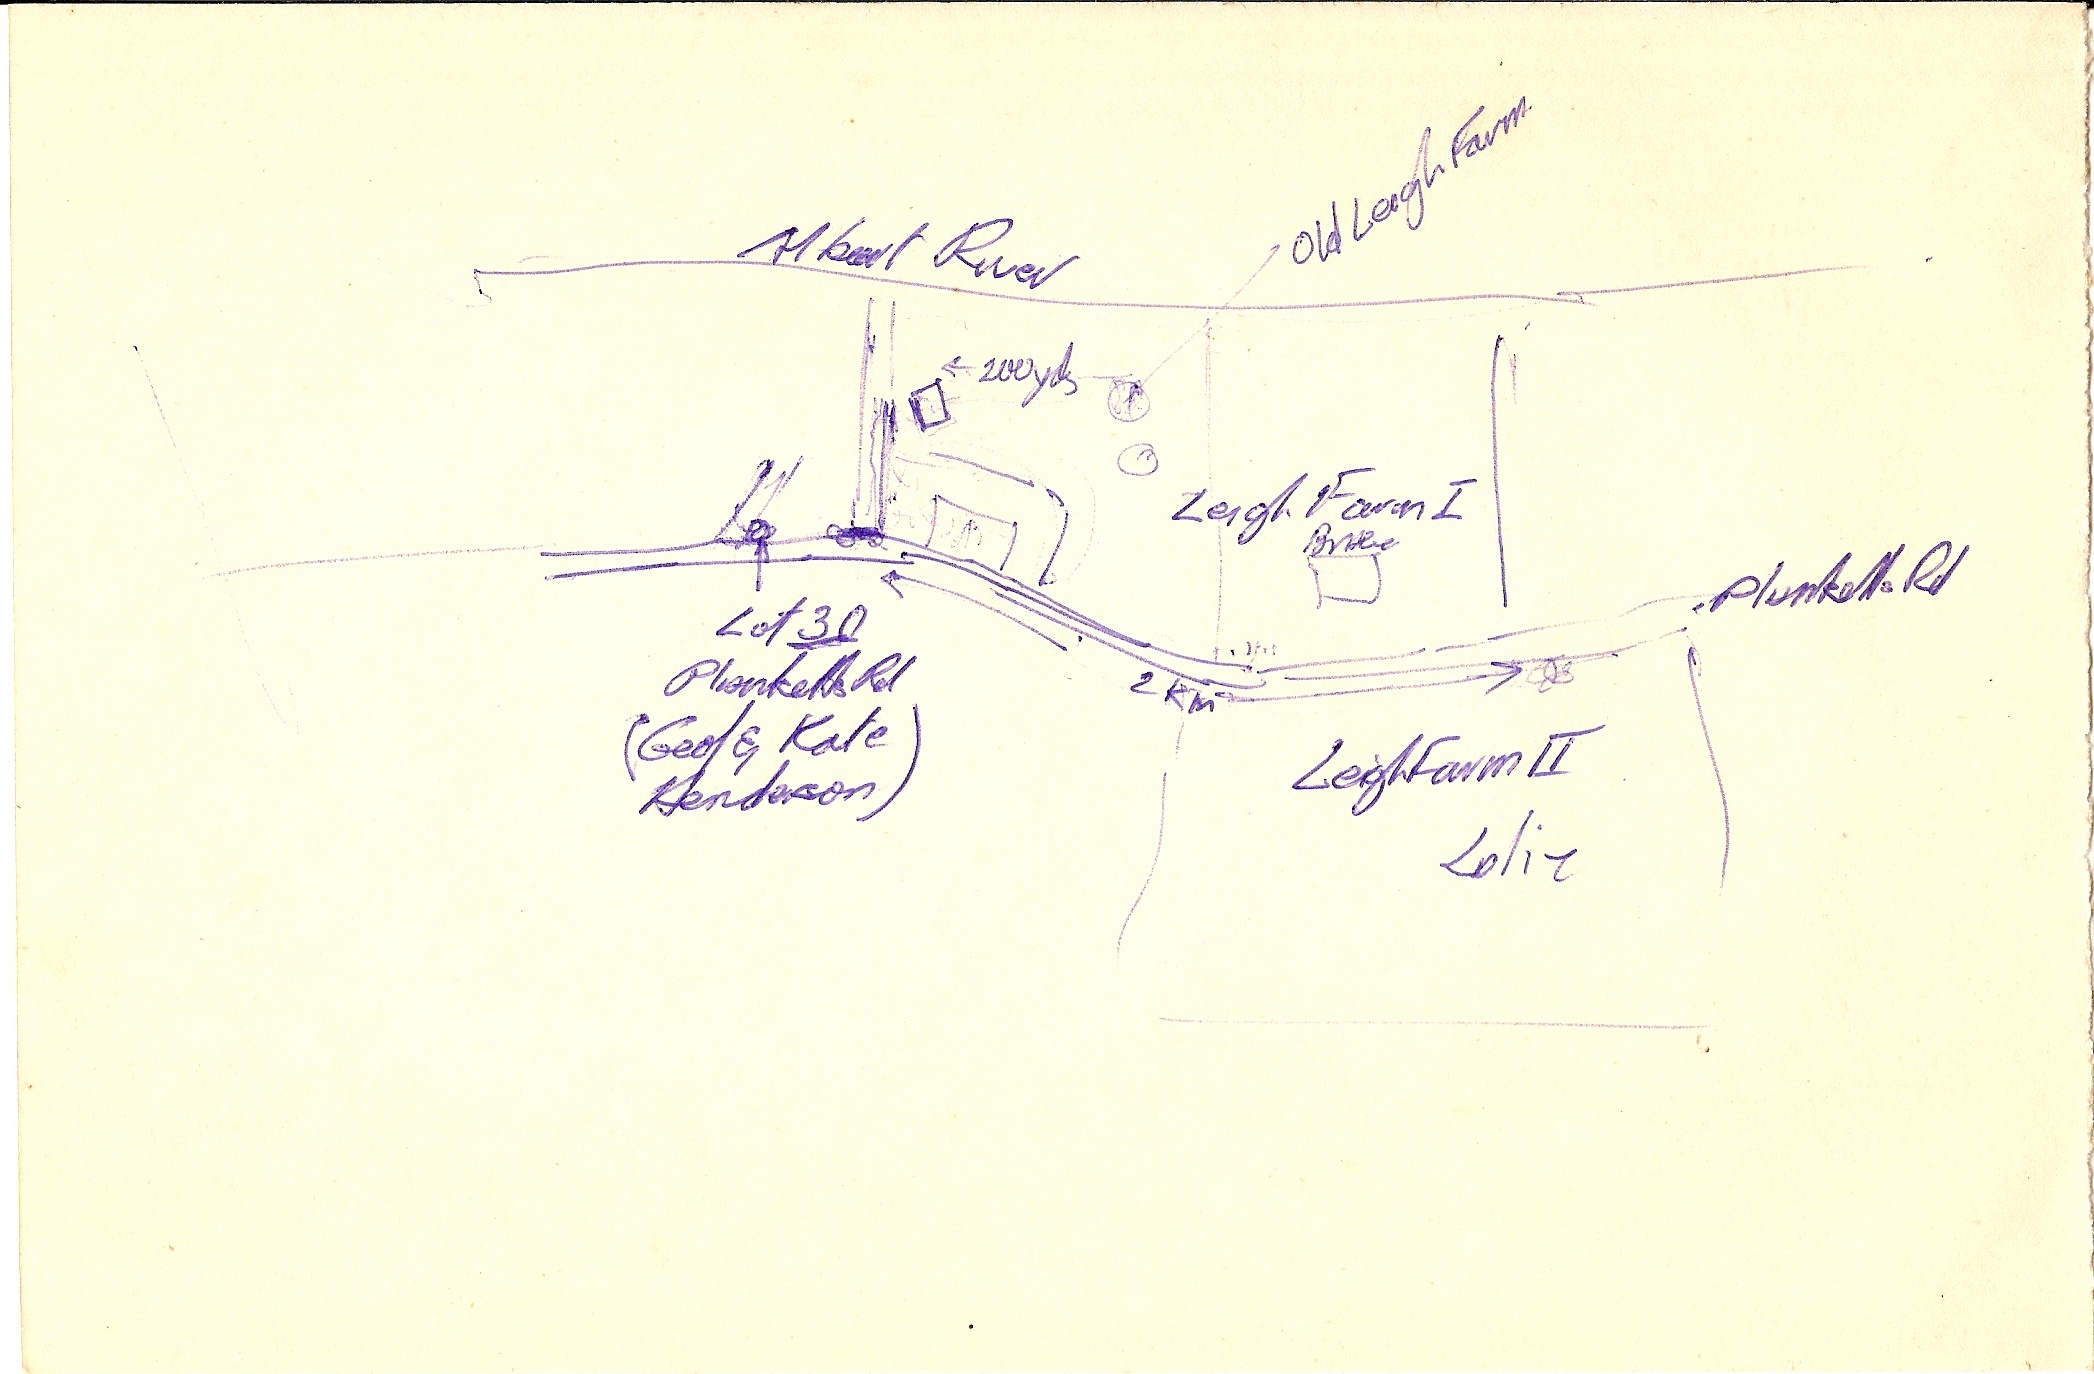 Old Leigh Farm
Albert River
← 200yds
Leigh Farm I
Plunketts Rd
Lot 30
Plunketts Rd
(Geof & Kate
Henderson)
2 Km
Leigh Farm II